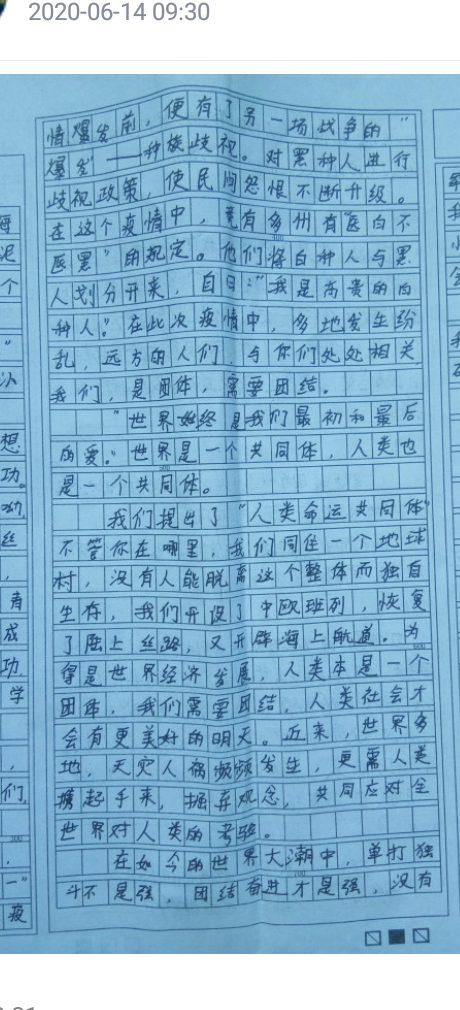 2020-06-14 09:30
情爆发前，便有了另一场战争的“
爆发——种族歧视。对黑种人进行
歧视政策，使民间怨恨不断升级。
在这个疫情中，竟有多州有“医白不
医黑”的规定。他们将白种人与黑
人划分开来，自曰：“我是高贵的白
种人”。在此次疫情中，多地发生纷
乱，远方的人们，与你们处处相关
我们，是团体，需要团结。
“世界始终是我们最初和最后
的爱。”世界是一个共同体，人类也
是一个共同体。
我们提出了“人类命运共同体”
不管你在哪里，我们同住一个地球
村，没有人能脱离这个整体而独自
生存，我们开设了中欧班列，恢复
了陆上丝路，又开辟海上航道。为
得是世界经济发展，人类本是一个
团体，我们需要团结，人类社会才
会有更美好的明天。近来，世界多
地，天灾人祸频频发生，更需人类
携起手来，摒弃观念，共同应对全
世界对人类的考验。
在如今的世界大潮中，单打独
斗不是强，团结奋进才是强，没有